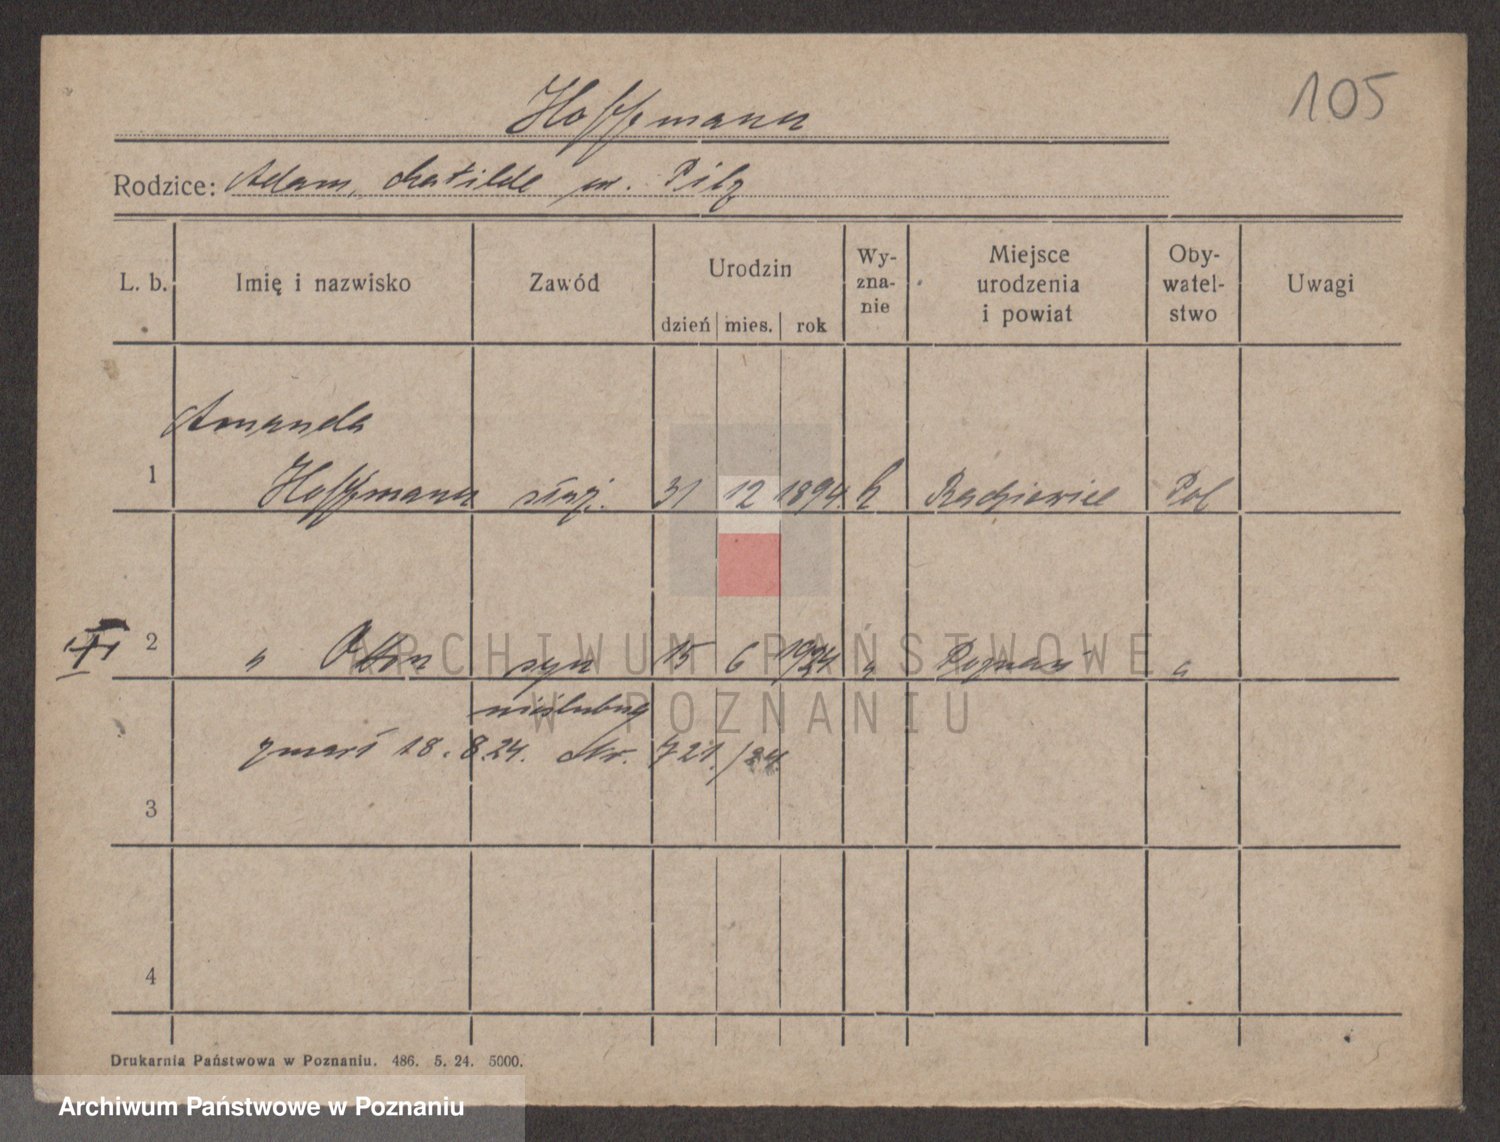 105
Hoffmann
Rodzice: Adam, Matilde ur. Pilz
L. b. Imię i nazwisko Zawód Urodzin dzień mies. rok Wy-zna-nie Miejsce urodzenia i powiat Oby-watel-stwo Uwagi
Amanda
1 Hoffmann służ. 31 12 1894. k Pol
2 " syn 15 6 1924 " Poznań "
nieślubny
zmarł 18. 8.24. Nr. 721./24.
3
4
Drukarnia Państwowa w Poznaniu. 486. 5. 24. 5000.
ARCHIWUM PAŃSTWOWE
W POZNANIU
Archiwum Państwowe w Poznaniu